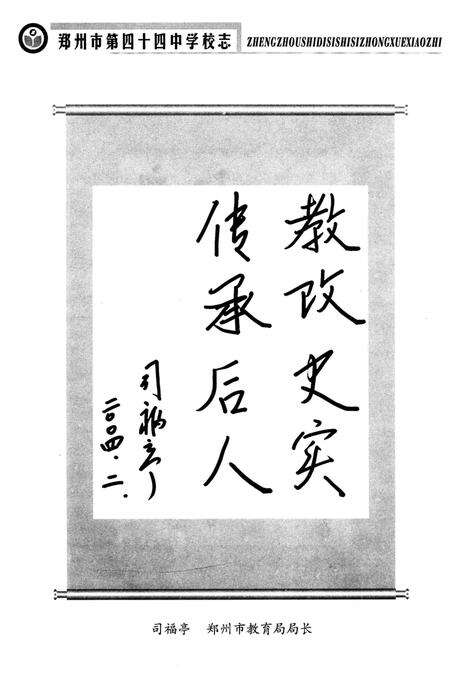 郑州市第四十四中学校志
ZHENGZHOUSHIDISISHISIZHONGXUEXIAOZHI
教改史实
传承后人
司福亭
二〇〇四.二.
司福亭 郑州市教育局局长